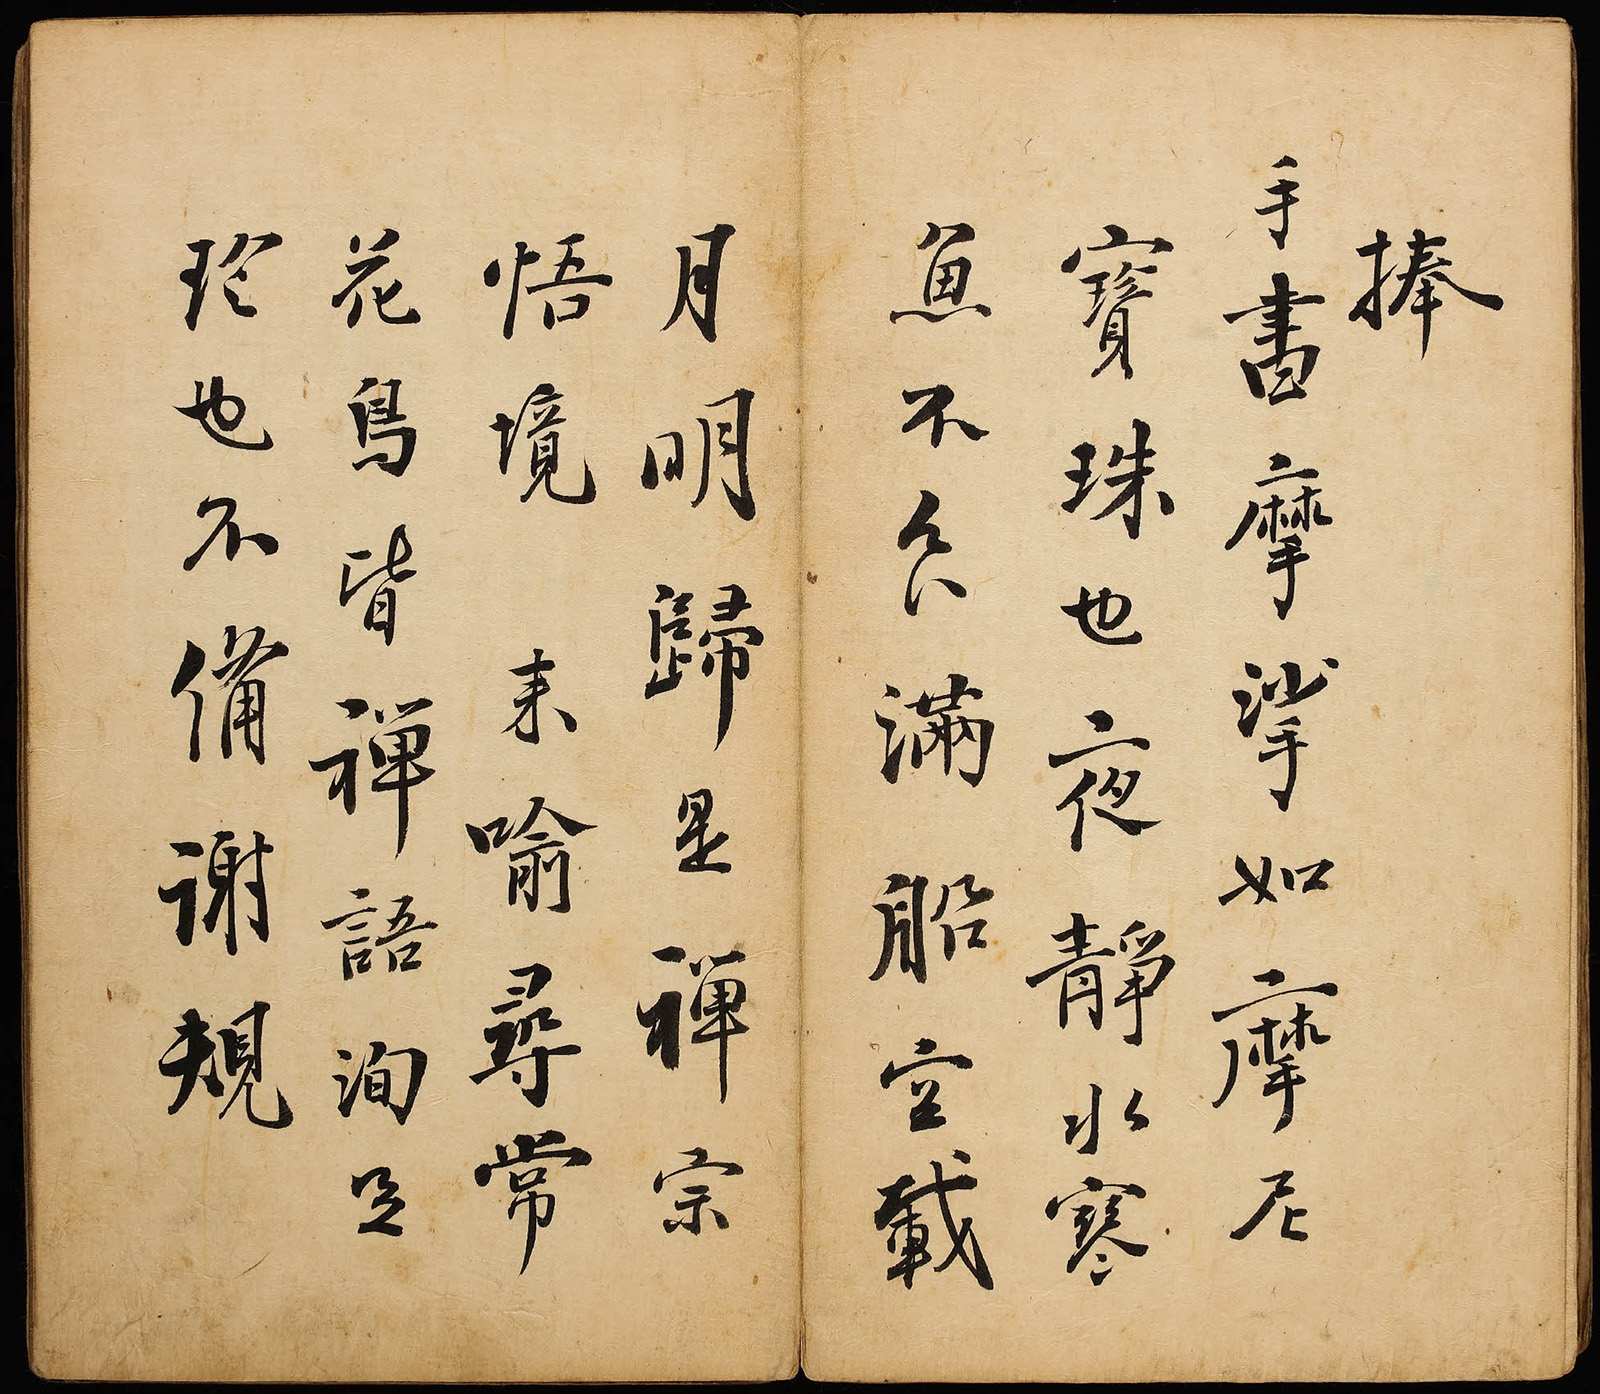 捧
手書摩挲如摩尼
寳珠也夜靜水寒
魚不食滿船空載
月明歸是禪宗
悟境來喻尋常
花鳥皆禪語洵足
珍也不備謝規